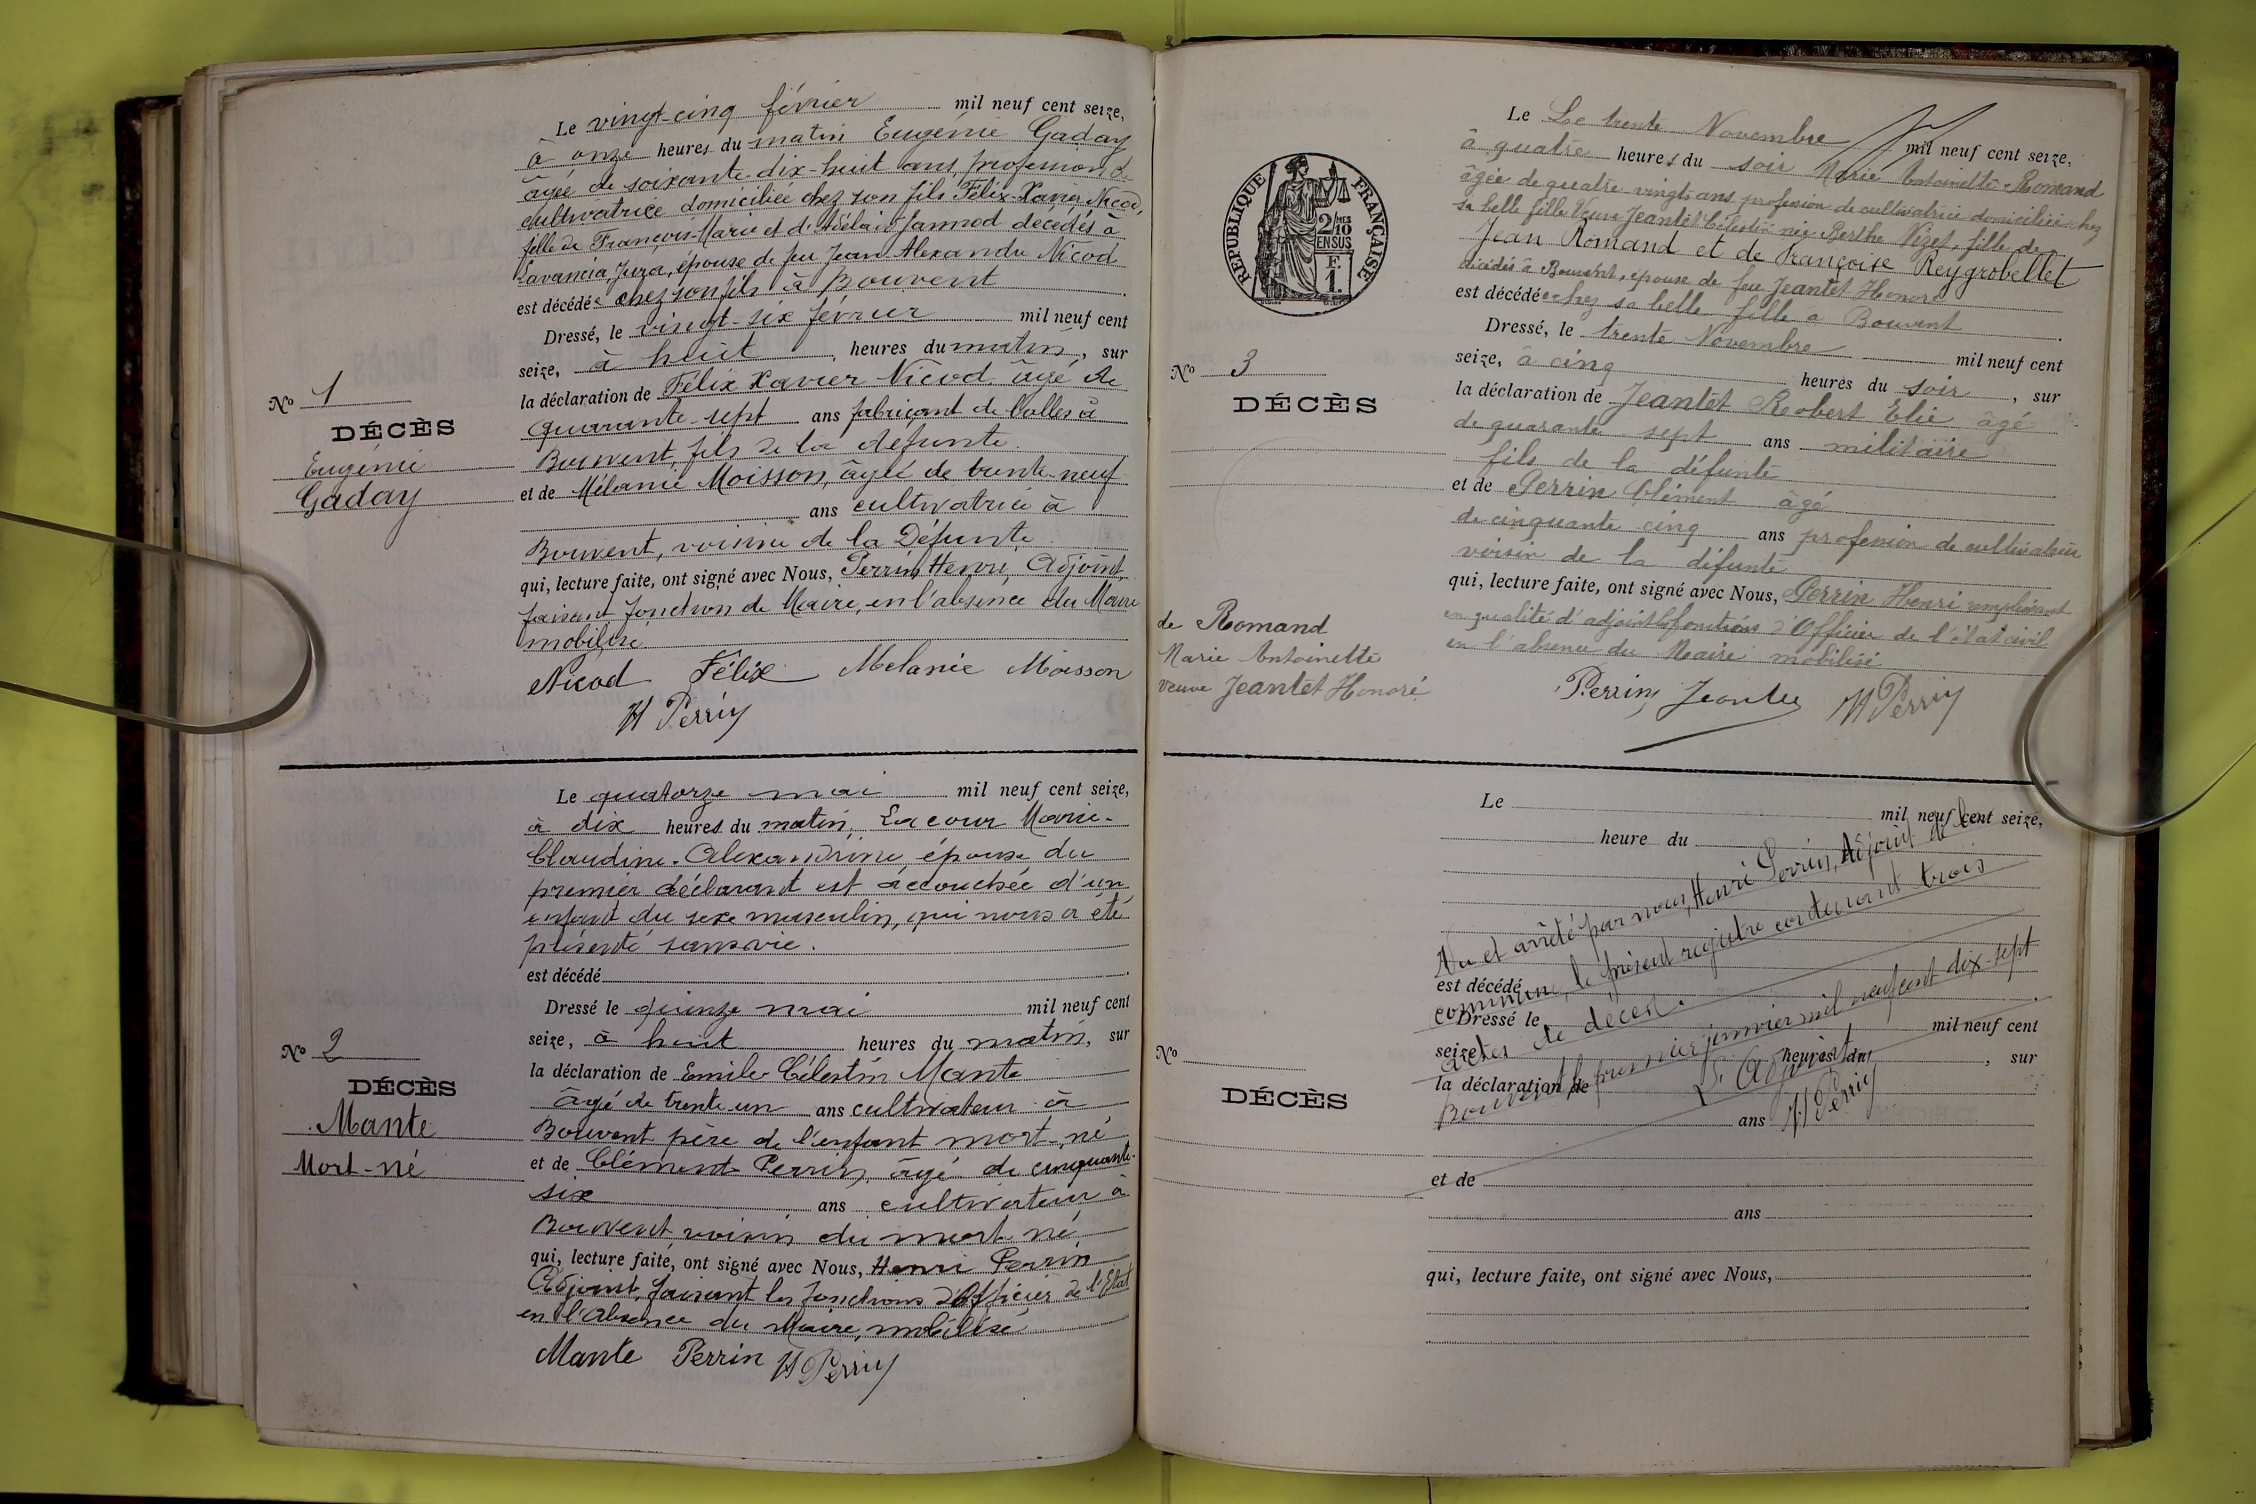 Le vingt-cinq février mil neuf cent seize,
à onze heures du matin Eugénie Gaday
âgée de soixante dix-huit ans, profession de
cultivatrice domiciliée chez son fils Félix-Xavier Nicod,
fille de François-Marie et d'Adélaïde Jannod décédés à
Lavancia Jura, épouse de feu Jean Alexandre Nicod
est décédée chez son fils à Bouvent
Dressé, le vingt-six février mil neuf cent
seize, à huit heures du matin, sur
la déclaration de Félix Xavier Nicod âgé de
quarante-sept ans fabricant de balles à
Bouvent, fils de la défunte
et de Mélanie Moisson, âgée de trente-neuf
ans cultivatrice à
Bouvent, voisine de la Défunte
qui, lecture faite, ont signé avec Nous, Perrin Henri, Adjoint
faisant fonction de Maire, en l'absence du Maire
mobilisé.
Nicod Félix Melanie Moisson
H Perrin
No 1
DÉCÈS
Eugénie
Gaday
Le quatorze mai mil neuf cent seize,
à dix heures du matin, Lacour Marie-
Claudine-Alexandrine, épouse du
premier déclarant est accouchée d'un
enfant du sexe masculin, qui nous a été
présenté sans vie.
est décédé
Dressé le quinze mai mil neuf cent
seize, à huit heures du matin, sur
la déclaration de Emile Célestin Mante
âgé de trente-un ans cultivateur à
Bouvent père de l'enfant mort-né
et de Clément Perrin, âgé de cinquante-
six ans cultivateur à
Bouvent voisin du mort né,
qui, lecture faite, ont signé avec Nous, Henri Perrin
Adjoint, faisant les fonctions d'Officier de l'Etat
en l'absence du Maire, mobilisé
Mante Perrin H Perrin
No 2
DÉCÈS
Mante
Mort-né
RÉPUBLIQUE FRANÇAISE
2/10MES
EN SUS
F.
1.
Le Le trente Novembre mil neuf cent seize,
à quatre heures du soir Marie Antoinette Romand
âgée de quatre-vingts ans profession de cultivatrice domiciliée chez
sa belle fille Veuve Jeantet Célestin née Berthe Vizet, fille de
Jean Romand et de Françoise Reygrobellet
décédés à Bouvent, épouse de feu Jeantet Honoré
est décédée chez sa belle fille a Bouvent
Dressé, le trente Novembre mil neuf cent
seize, à cinq heures du soir, sur
la déclaration de Jeantet Robert Elie âgé
de quarante sept ans militaire
fils de la défunte
et de Perrin Clément âgé
de cinquante cinq ans profession de cultivateur
voisin de la défunte
qui, lecture faite, ont signé avec Nous, Perrin Henri remplissant
en qualité d'adjoint les fonctions d'Officier de l'état civil
en l'absence du Maire mobilisé
Perrin Jeantet H Perrin
No 3
DÉCÈS
de Romand
Marie Antoinette
veuve Jeantet Honoré
Le mil neuf cent seize,
heure du
est décédé
Dressé le mil neuf cent
seize, heures du, sur
la déclaration de
ans
et de
ans
qui, lecture faite, ont signé avec Nous,
No
DÉCÈS
Vu et arrêté par nous, Henri Perrin, Adjoint de la
commune, le présent registre contenant trois
actes de décès.
Bouvent le premier janvier mil neuf cent dix-sept
L'Adjoint
H Perrin